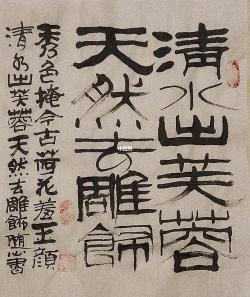 清水出芙蓉
天然去雕飾
秀色掩今古荷花羞玉顏
清水出芙蓉天然去雕飾書